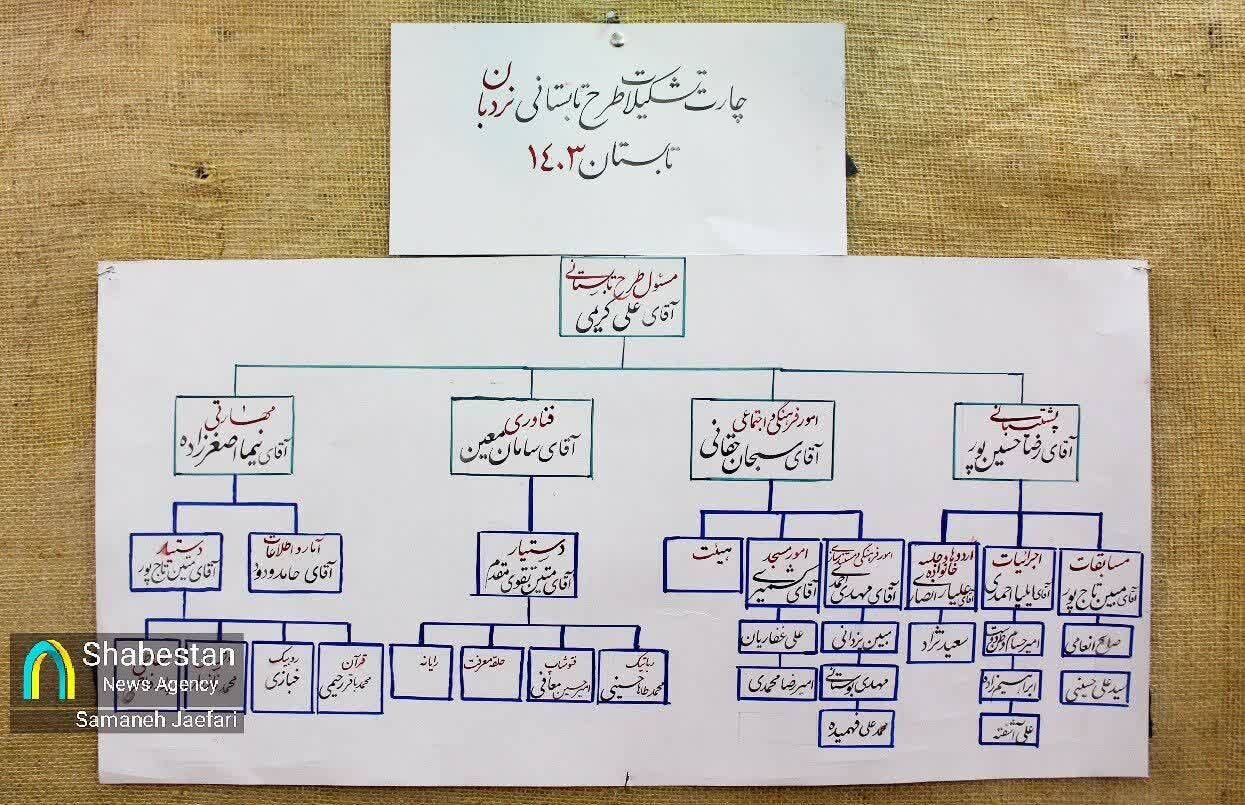 چارت تشکیلات طرح تابستانی نردبان
تابستان ۱۴۰۳
مسئول طرح تابستانی
آقای علی کریمی
پشتیبانی
آقای رضا حسین پور
امور فرهنگی و اجتماعی
آقای سبحان حقانی
فناوری
آقای سامان معین
مهارتی
آقای نیما اصغرزاده
مسابقات
آقای مبین تاج پور
اجرائیات
آقای ایلیا احمدی
اردوها و جلسه
خانواده
آقای علیار انصاری
امور فرهنگی
آقای مهدی احمدی
امور مسجد
آقای کشمیری
هیئت
دستیار
آقای متین تقوی مقدم
آمار و اطلاعات
آقای حامد ودود
دستیار
آقای متین تاج پور
صالح انعامی
امیر حسام
سعید نژاد
مبین یزدانی
علی غفاریان
سید علی حسینی
ابراهیم زاده
مهدی بوستانی
امیررضا محمدی
علی آشفته
محمد علی فهمیده
رباتیک
محمد طاها حسینی
فتوشاپ
امیرحسین معافی
حلقه معرفت
رایانه
قرآن
محمد باقر رحیمی
روبیک
خبازی
Shabestan
News Agency
Samaneh Jaefari